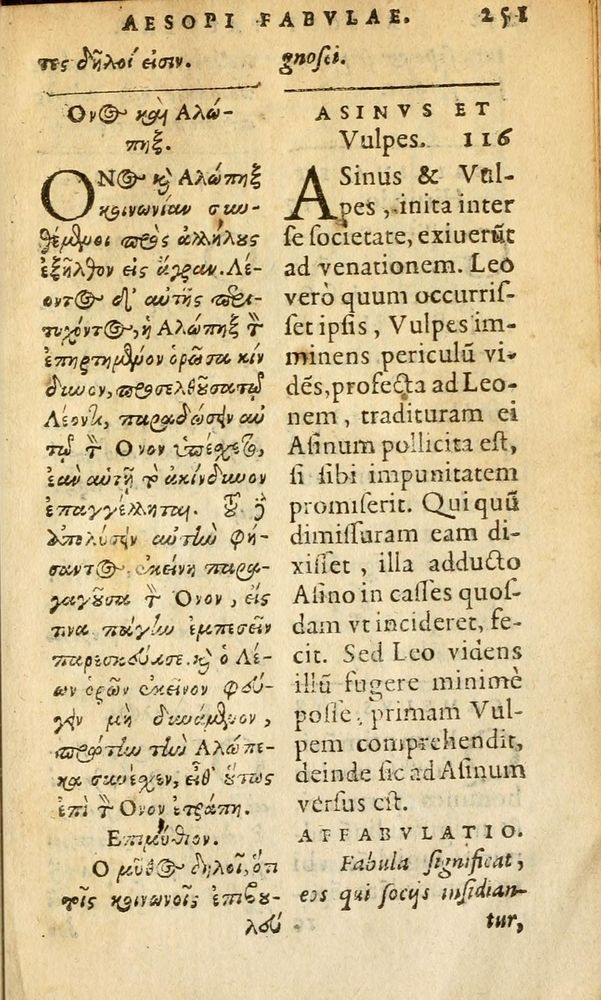 AESOPI FABVLAE. 251
τες δῆλοί εἰσιν.
Ὄνος καὶ Αλώ-
πηξ.
ΟΝος καὶ Αλώπηξ
κοινωνίαν συν-
θέμενοι πρὸς ἀλλήλους
ἐξῆλθον εἰς ἄγραν. Λέ-
οντος δ' αὐτῆς περι-
τυχόντος, ἡ Αλώπηξ τὸν
ἐπηρτημένον ὁρῶσα κίν
δυνον, προσελθοῦσα τῷ
Λέοντι, παραδώσειν αὐ
τῷ τὸν Ὄνον ὑπέσχετο,
ἐὰν αὐτῇ τὸ ἀκίνδυνον
ἐπαγγέλληται. τοῦ δὲ
ἀπολύσειν αὐτὴν φή-
σαντος ἐκείνη παρα-
γαγοῦσα τὸν Ὄνον, εἰς
τινα πάγην ἐμπεσεῖν
παρεσκεύασε. καὶ ὁ Λέ-
ων ὁρῶν ἐκεῖνον φεύ-
γειν μὴ δυνάμενον,
πρώτην τὴν Αλώπε-
κα συνέσχεν, εἶθ' οὕτως
ἐπὶ τὸν Ὄνον ἐτράπη.
Επιμύθιον.
Ο μῦθος δηλοῖ, ὅτι
τοῖς κοινωνοῖς ἐπιβου-
λεύ
gnosci.
ASINVS ET
Vulpes. 116
ASinus & Vul-
pes, inita inter
se societate, exiuerūt
ad venationem. Leo
verò quum occurris-
set ipsis, Vulpes im-
minens periculū vi-
dēs, profecta ad Leo-
nem, tradituram ei
Asinum pollicita est,
si sibi impunitatem
promiserit. Qui quū
dimissuram eam di-
xisset, illa adducto
Asino in casses quos-
dam vt incideret, fe-
cit. Sed Leo videns
illū fugere minimè
posse, primam Vul-
pem comprehendit,
deinde sic ad Asinum
versus est.
AFFABVLATIO.
Fabula significat,
eos qui socijs insidian-
tur,